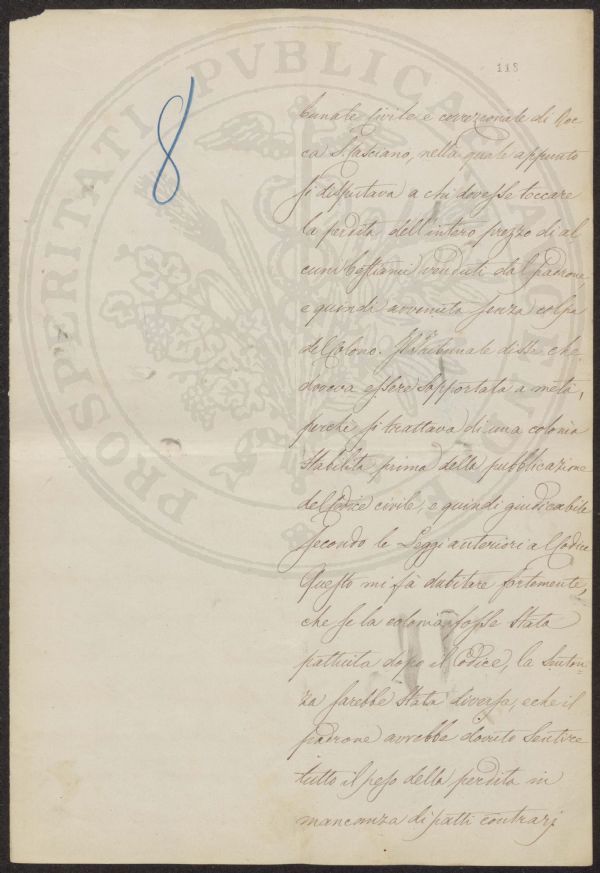 118
8
bunale civile e correzionale di Roc
ca S. Casciano, nella quale appunto
si disputava a chi dovesse toccare
la perdita dell'intero prezzo di al
cuni bestiami venduti dal padrone,
e quindi avvenuta senza colpa
del Colono. Il Tribunale disse che
doveva essere sopportata a metà,
perché si trattava di una colonia
stabilita prima della pubblicazione
del Codice civile, e quindi giudicabile
secondo le Leggi anteriori al Codice
Questo mi fà dubitare fortemente,
che se la colonia fosse stata
pattuita dopo il Codice, la Senten-
za sarebbe stata diversa, e che il
padrone avrebbe dovuto sentire
tutto il peso della perdita in
mancanza di patti contrarj
PROSPERITATI PVBLICAE